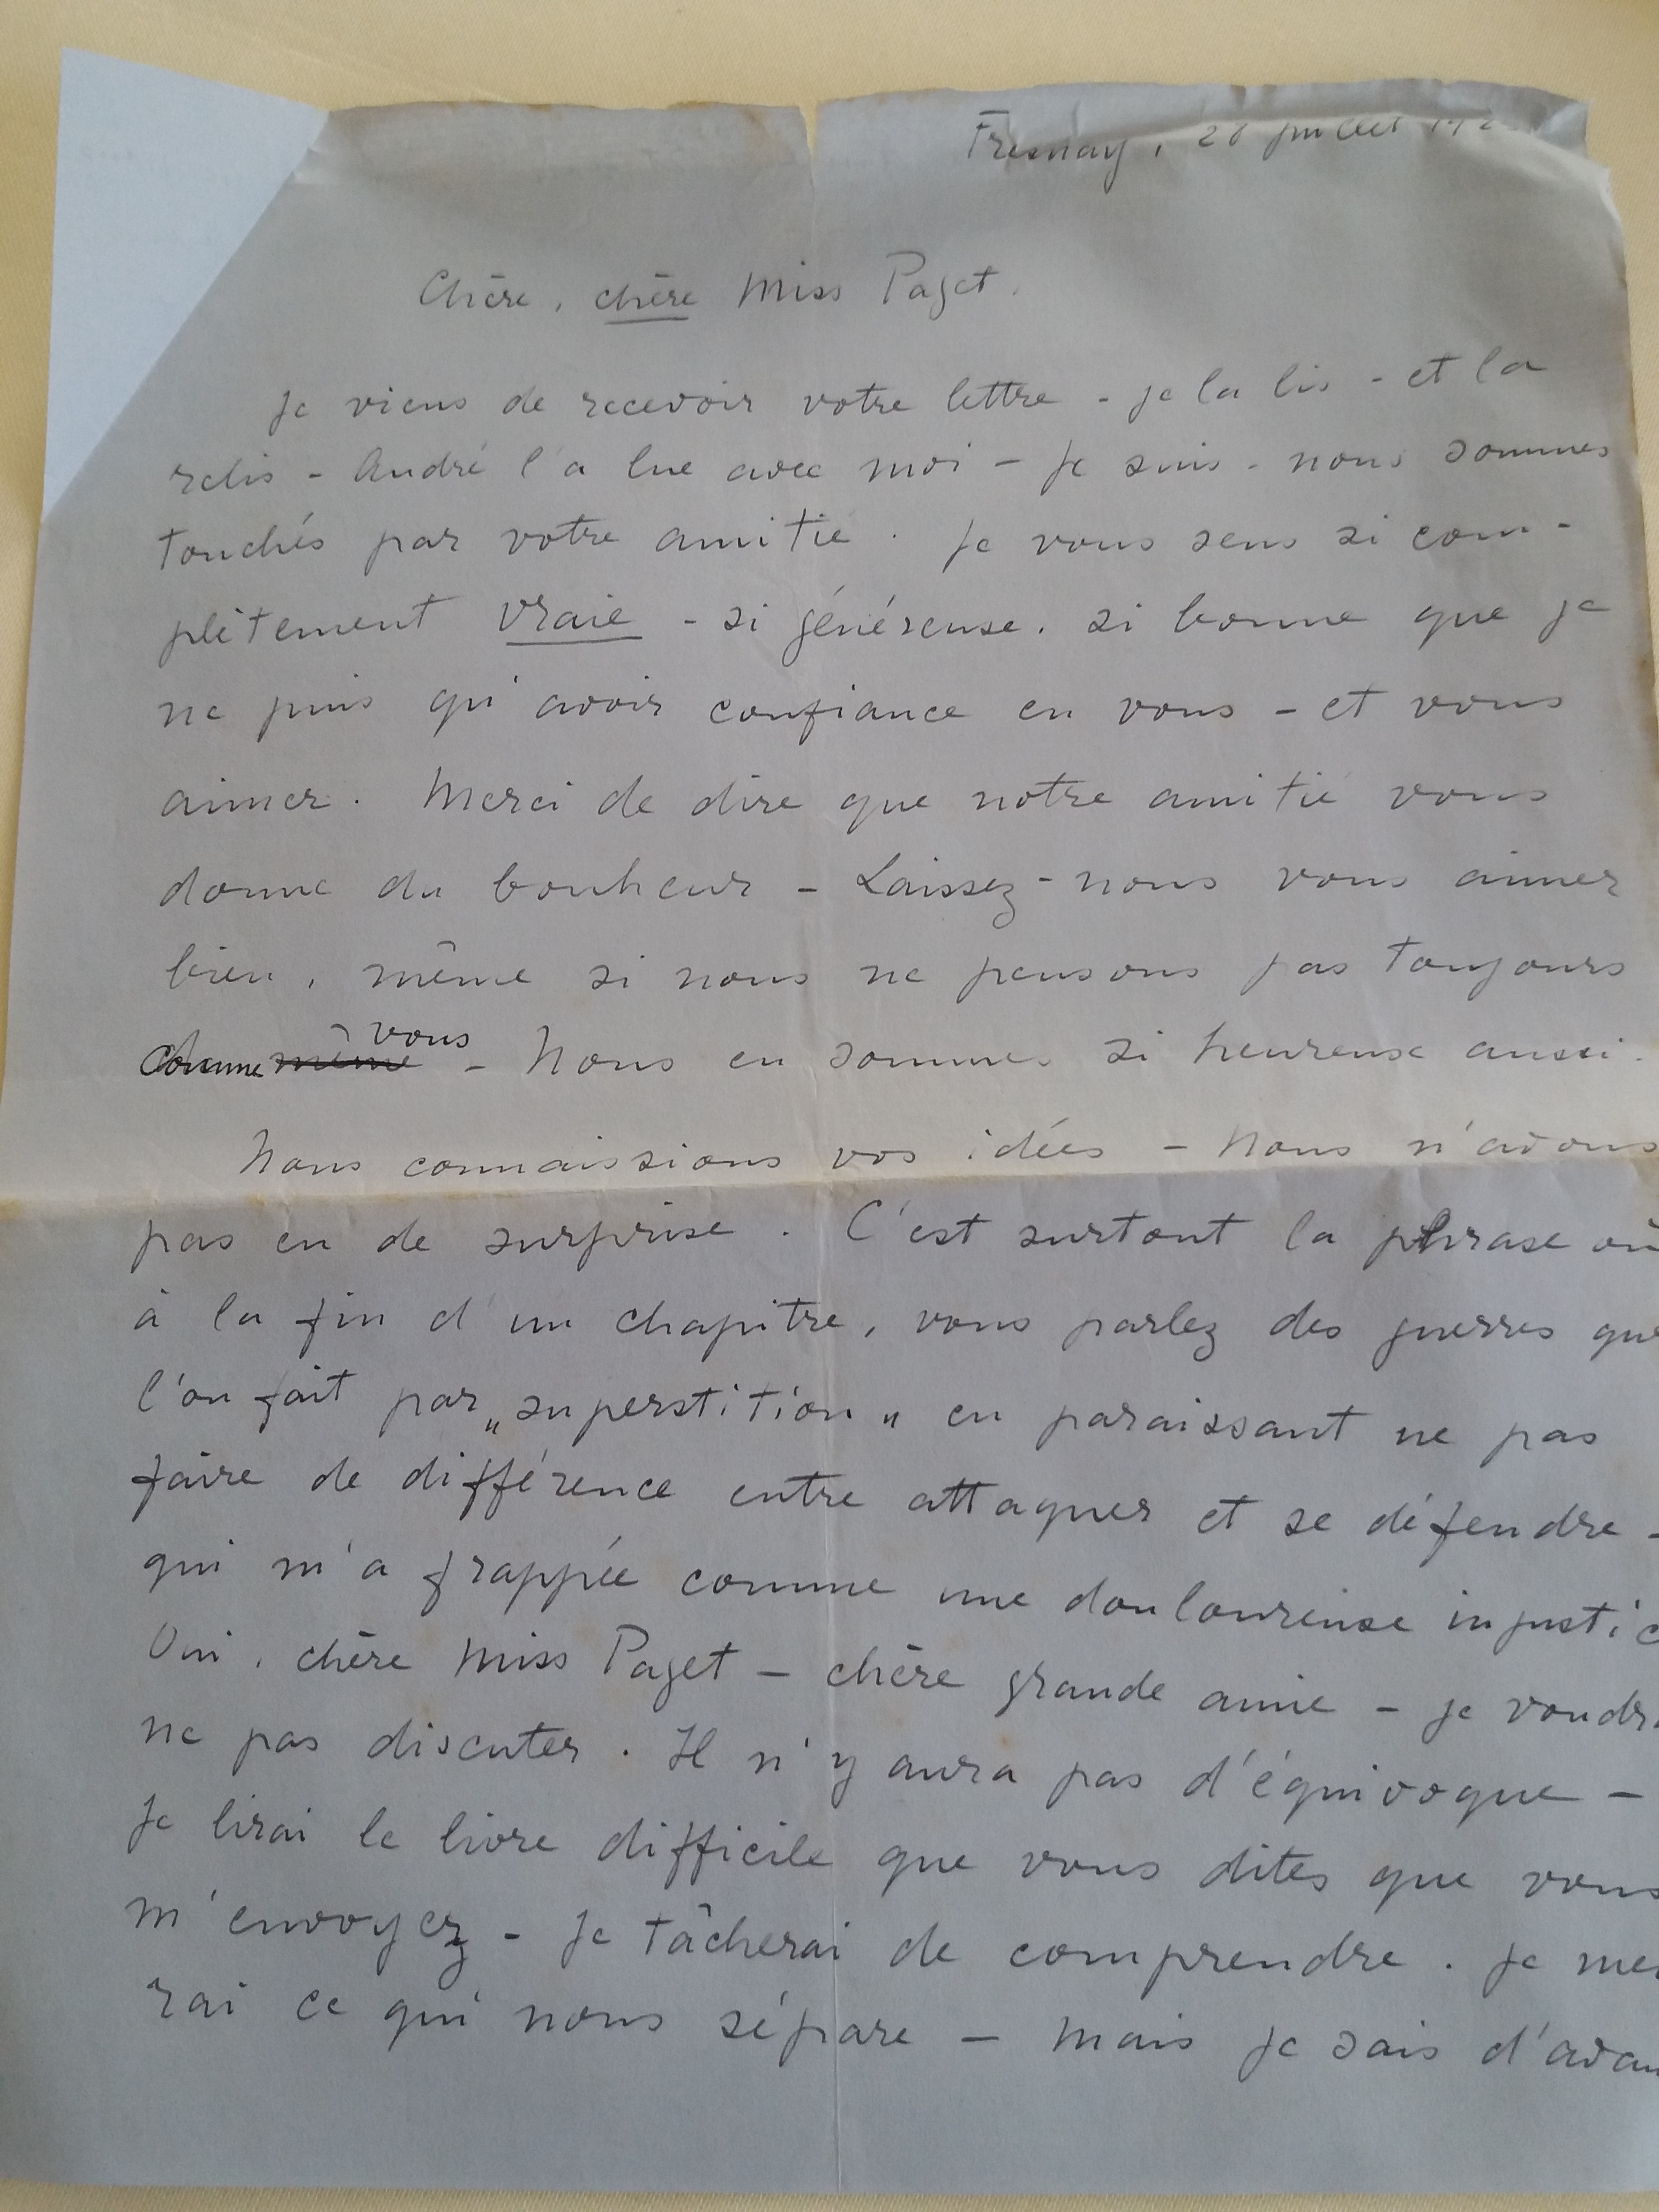 Fresnay, 28 juillet 192
Chère, chère Miss Paget.
Je viens de recevoir votre lettre - je la lis - et la
relis - André l'a lue avec moi - Je suis - nous sommes
touchés par votre amitié. Je vous sens si com-
plètement vraie - si généreuse. si bonne que je
ne puis qu'avoir confiance en vous - et vous
aimer. Merci de dire que notre amitié vous
donne du bonheur - Laissez-nous vous aimer
bien, même si nous ne pensons pas toujours
Comme même vous - Nous en sommes si heureux aussi.
Nous connaissions vos idées - Nous n'avons
pas eu de surprise. C'est surtout la phrase où
à la fin d'un chapitre, vous parlez des guerres que
l'on fait par „superstition„ en paraissant ne pas
faire de différence entre attaquer et se défendre -
qui m'a frappée comme une douloureuse injustic
Oui, chère Miss Paget - chère grande amie - je voudra
ne pas discuter. Il n'y aura pas d'équivoque -
Je lirai le livre difficile que vous dites que vous
m'envoyez - Je tâcherai de comprendre. Je me
rai ce qui nous sépare - Mais je sais d'avan